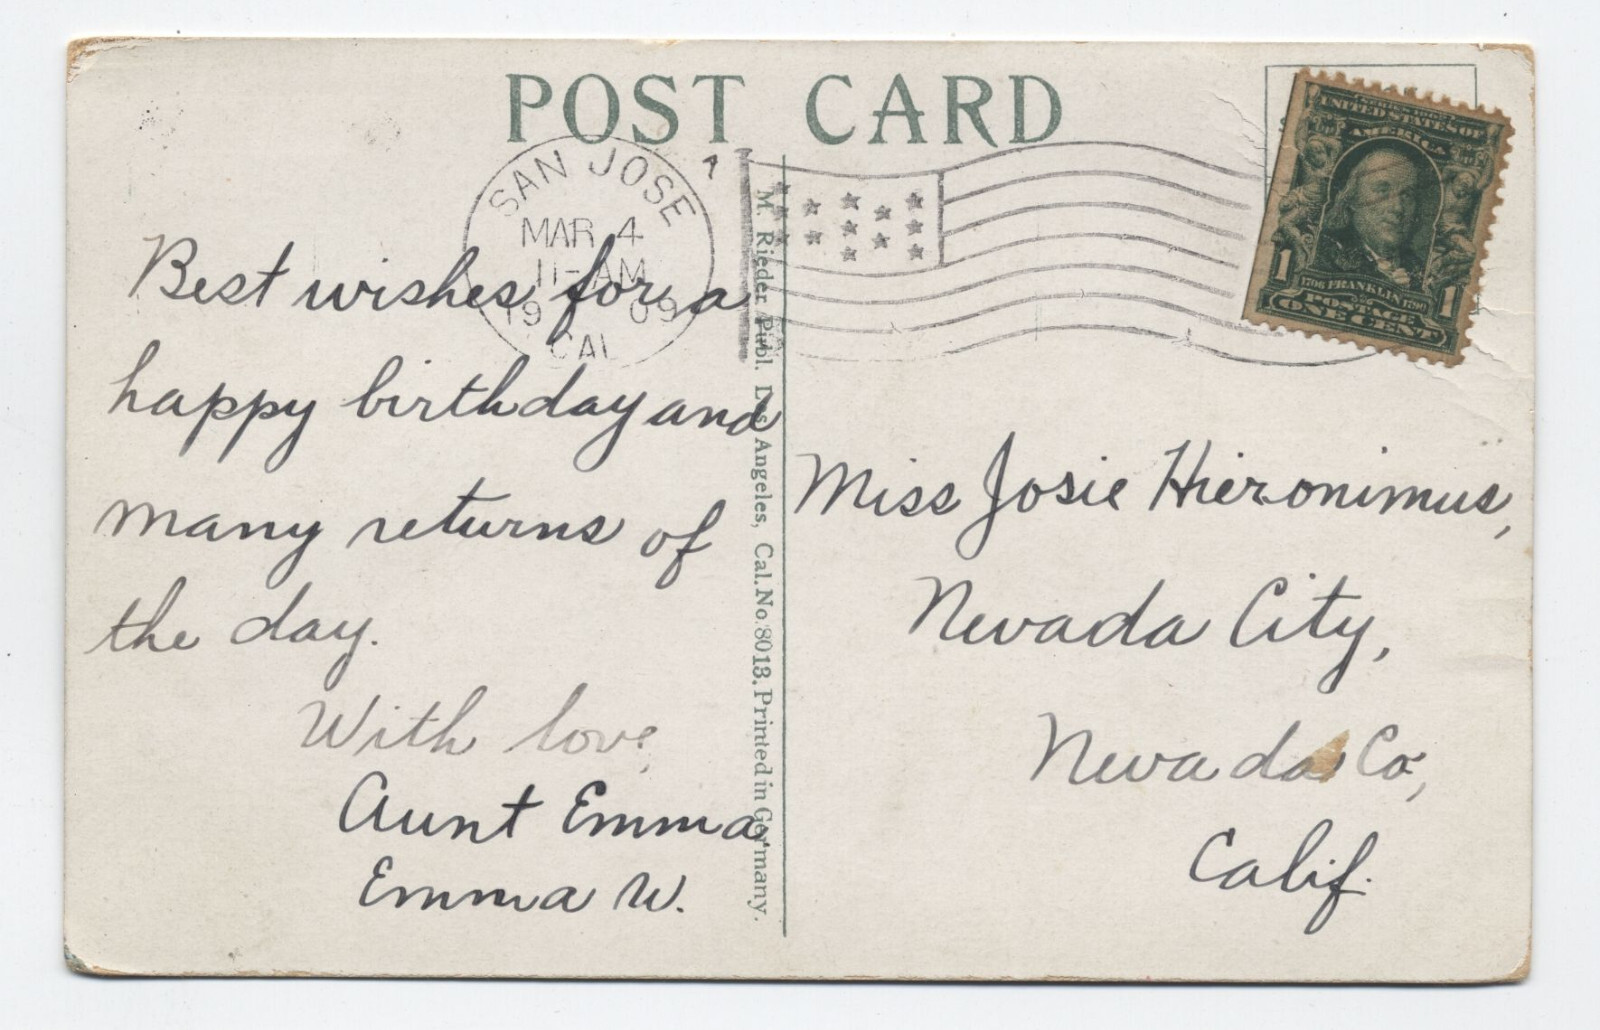 POST CARD
SAN JOSE
MAR 4
11-AM
1909
CAL
SERIES 1902
UNITED STATES OF
AMERICA
1706 FRANKLIN 1790
1 1
POSTAGE
ONE CENT
Best wishes for a
happy birthday and
many returns of
the day.
With love,
Aunt Emma
Emma W.
M. Rieder, Publ. Los Angeles, Cal. No. 8013. Printed in Germany.
Miss Josie Hieronimus,
Nevada City,
Nevada Co,
Calif.